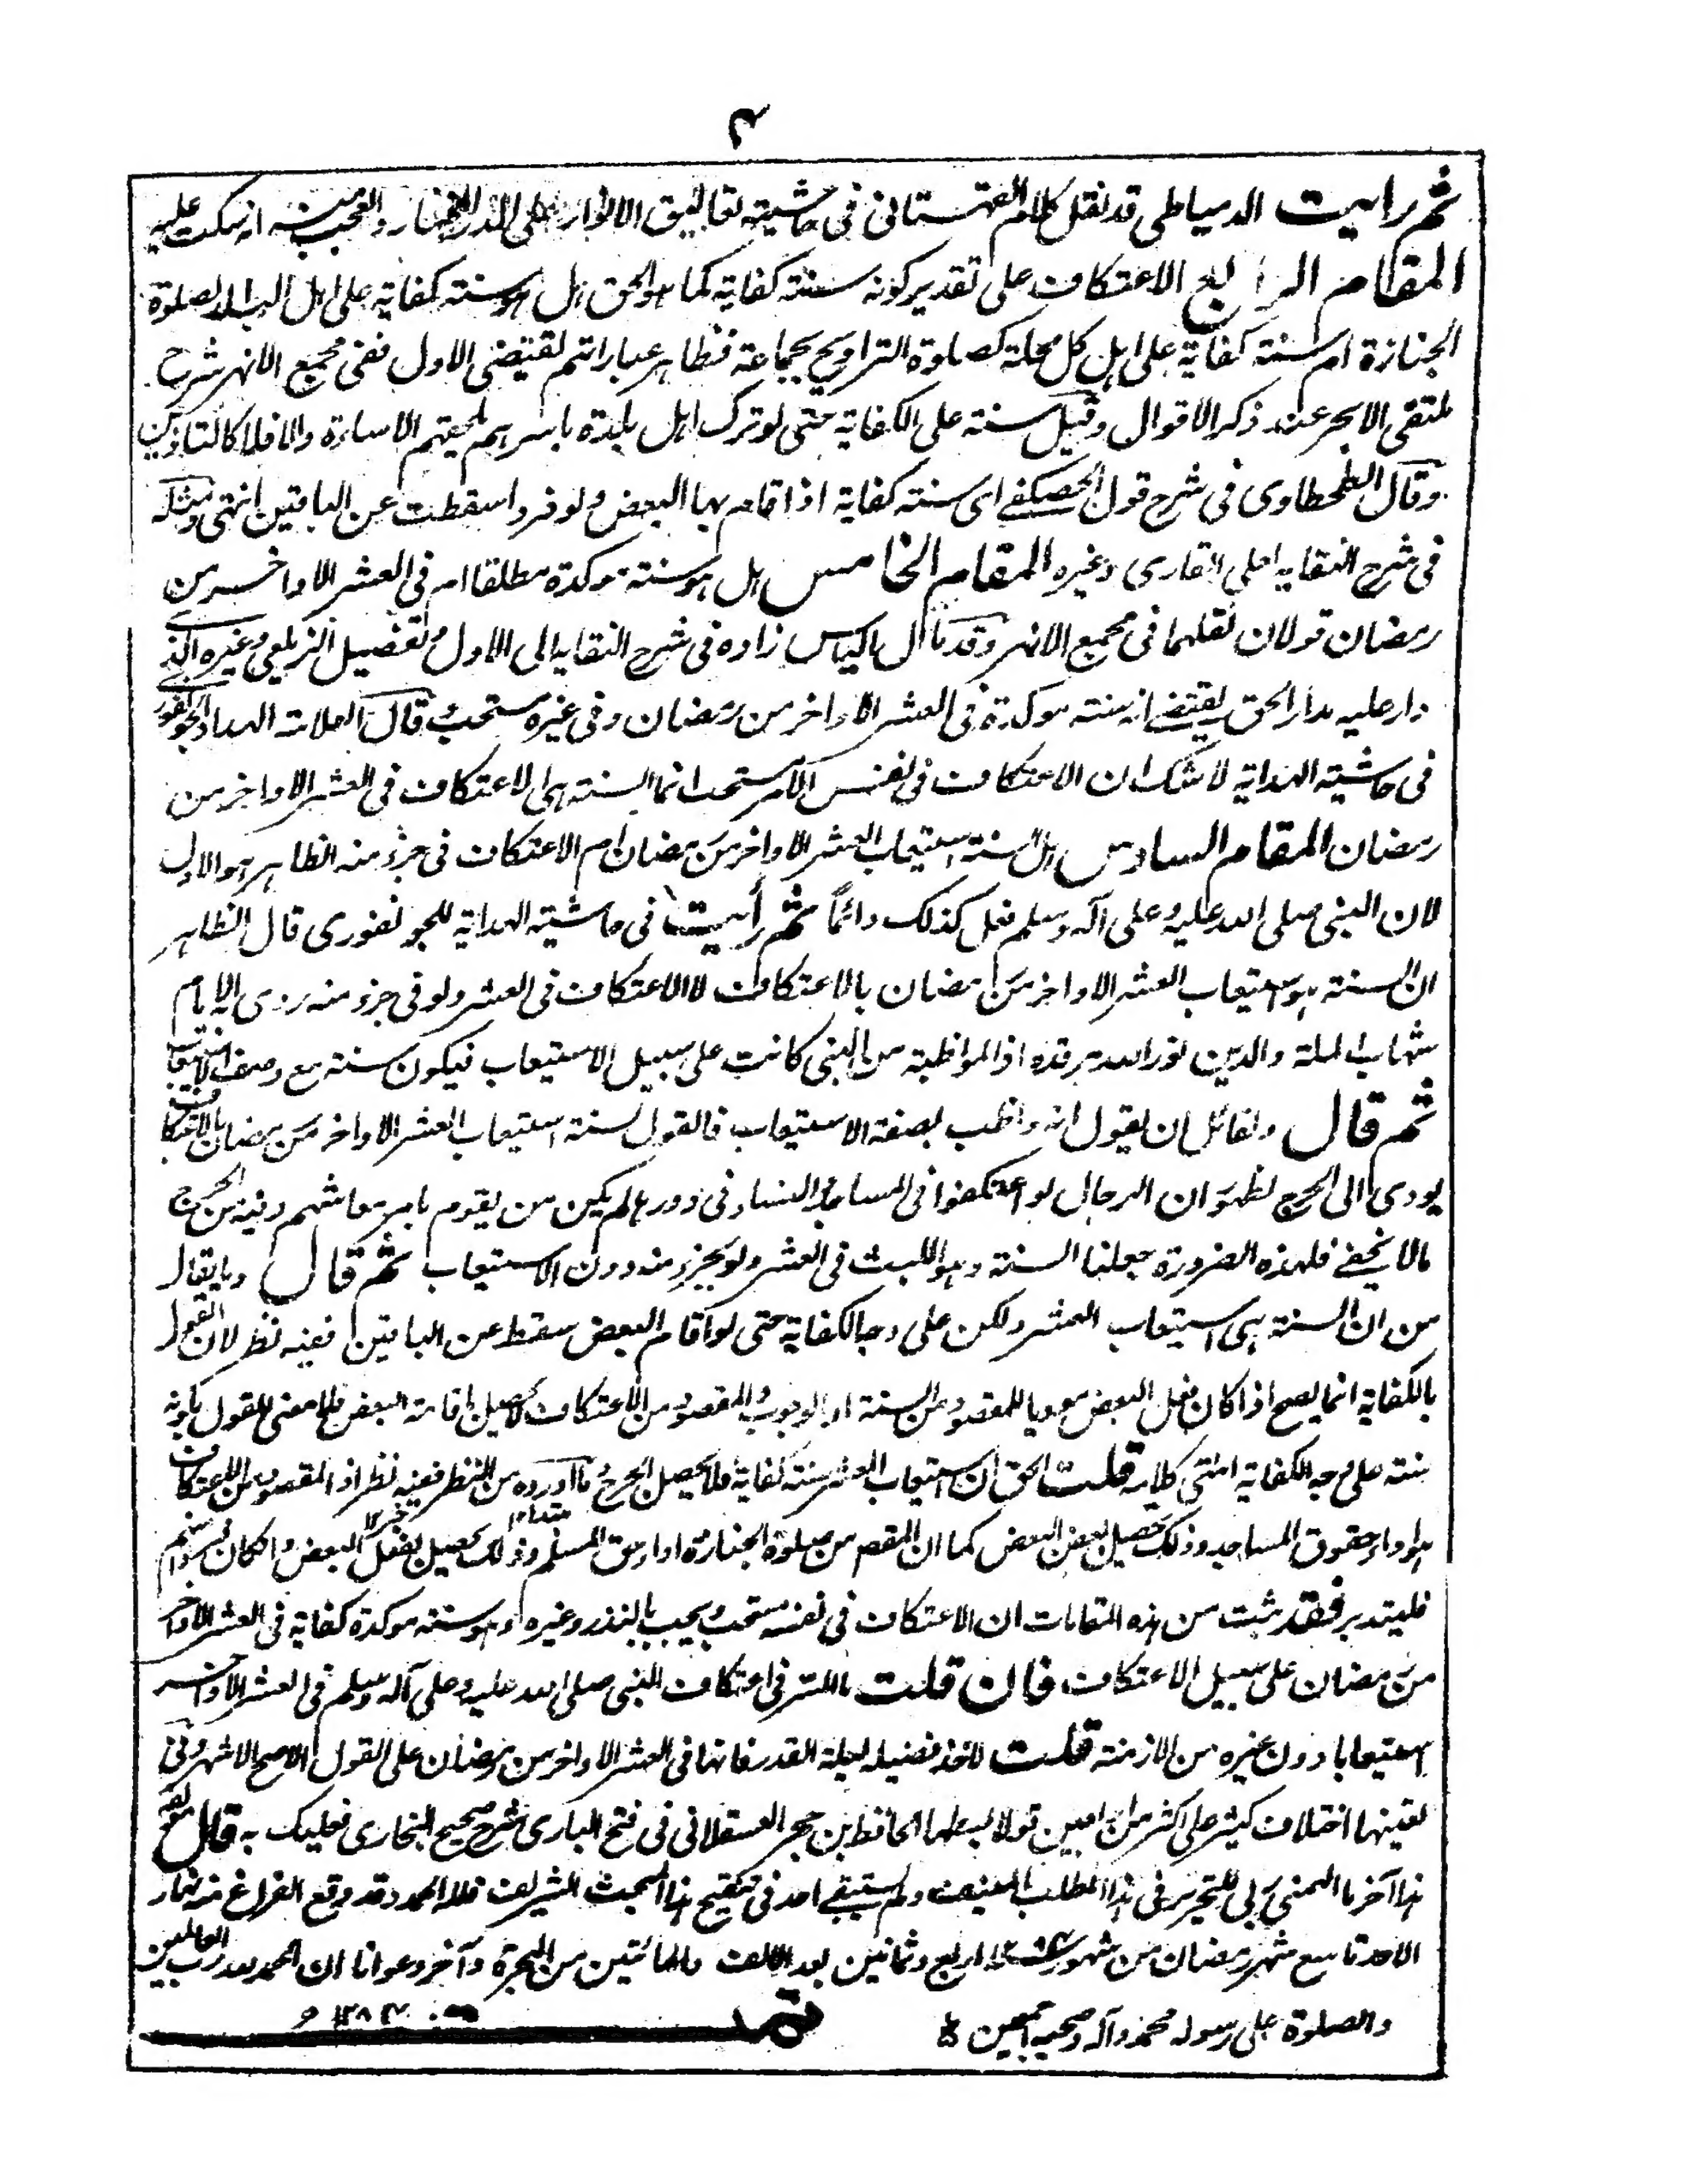 ثم رأيت الدمياطي قد نقل كلام القهستاني في حاشيته تعاليق الانوار على الدر المختار والعجب منه انه سكت عليه
المقام الرابع الاعتكاف على تقدير كونه سنة كفاية كما هو الحق هل هو سنة كفاية على اهل البلد كصلوة
الجنازة ام سنة كفاية على اهل كل محلة كصلوة التراويح بجماعة فظاهر عباراتهم يقتضى الاول ففي مجمع الانهر شرح
ملتقى الابحر عند ذكر الاقوال وقيل سنة على الكفاية حتى لو ترك اهل بلدة باسرهم يلحقهم الاساءة والا فلا كالتاذين
وقال الطحطاوى في شرح قول الحصكفى اى سنة كفاية اذا قام بها البعض ولو فردا سقطت عن الباقين انتهى ومثله
فى شرح النقاية لعلى القارى وغيره المقام الخامس هل هو سنة موكدة مطلقا ام فى العشر الاواخر من
رمضان قولان نقلهما فى مجمع الانهر وقد مال الياس زاده فى شرح النقاية الى الاول وتفصيل الزيلعي وغيره الذى
دار عليه مدار الحق يقتضى انه سنة موكدة فى العشر الاواخر من رمضان وفى غيره مستحب وقال العلامة الهداد الجونفورى
فى حاشية الهداية لا شك ان الاعتكاف فى نفس الامر مستحب انما السنة هى الاعتكاف فى العشر الاواخر من
رمضان المقام السادس هل السنة استيعاب العشر الاواخر من رمضان ام الاعتكاف فى جزء منه الظاهر هو الاول
لان النبى صلى الله عليه وعلى آله وسلم فعل كذلك دائماً ثم رأيت فى حاشية الهداية للجونفورى قال الظاهر
ان السنة هو استيعاب العشر الاواخر من رمضان بالاعتكاف لا الاعتكاف فى العشر ولو فى جزء منه روى الامام
شهاب الملة والدين نور الله مرقده اذ المواظبة من النبى كانت على سبيل الاستيعاب فيكون سنة مع وصف الاستيعاب
ثم قال ولقائل ان يقول انه واظب بصفة الاستيعاب فالقول بسنة استيعاب العشر الاواخر من رمضان بالاعتكاف
يودى الى الحرج لظهور ان الرجال لو اعتكفوا فى المساجد والنساء فى دورهم لم يكن من يقوم بامر معاشهم وفيه من الحرج
ما لا يخفى فلهذه الضرورة جعلنا السنة وهو اللبث فى العشر ولو بجزء منه دون الاستيعاب ثم قال وما يقال
من ان السنة هى استيعاب العشر ولكن على وجه الكفاية حتى لو اقام البعض سقط عن الباقين ففيه نظر لان القول
بالكفاية انما يصح اذا كان فعل البعض موديا للمقصود من السنة او الوجوب والمقصود من الاعتكاف لا يحصل باقامة البعض فلا معنى للقول بكونه
سنة على وجه الكفاية انتهى كلامه قلت الحق ان استيعاب العشر سنة كفاية فلا يحصل الحرج وما اورده من النظر ففيه نظر اذ المقصود من الاعتكاف
هو اداء حقوق المساجد وذلك يحصل بفعل البعض كما ان المقصد من صلوة الجنازة اداء حق المسلم وذلك يحصل بفعل البعض
فليتدبر فقد ثبت من هذه المقامات ان الاعتكاف فى نفسه مستحب ويجب بالنذر وغيره وهو سنة موكدة كفاية فى العشر الاواخر
من رمضان على سبيل الاعتكاف فان قلت ما السر فى اعتكاف النبى صلى الله عليه وعلى آله وسلم فى العشر الاواخر
استيعابا دون غيره من الازمنة قلت لاخذ فضيلة ليلة القدر فانها فى العشر الاواخر من رمضان على القول الاصح الاشهر وفى
تعيينها اختلاف كثير على اكثر من اربعين قولا بسطها الحافظ ابن حجر العسقلانى فى فتح البارى شرح صحيح البخارى فعليك به قال مولفه
هذا آخر ما الهمنى ربى للتحرير فى هذا المطلب المنيف ولم يسبقنى احد فى تنقيح هذا المبحث الشريف فلله الحمد وقد وقع الفراغ منه نهار
الاحد تاسع شهر رمضان من شهور سنة اربع وثمانين بعد الالف والمائتين من الهجرة وآخر دعوانا ان الحمد لله رب العالمين
والصلوة على رسوله محمد وآله وصحبه اجمعين